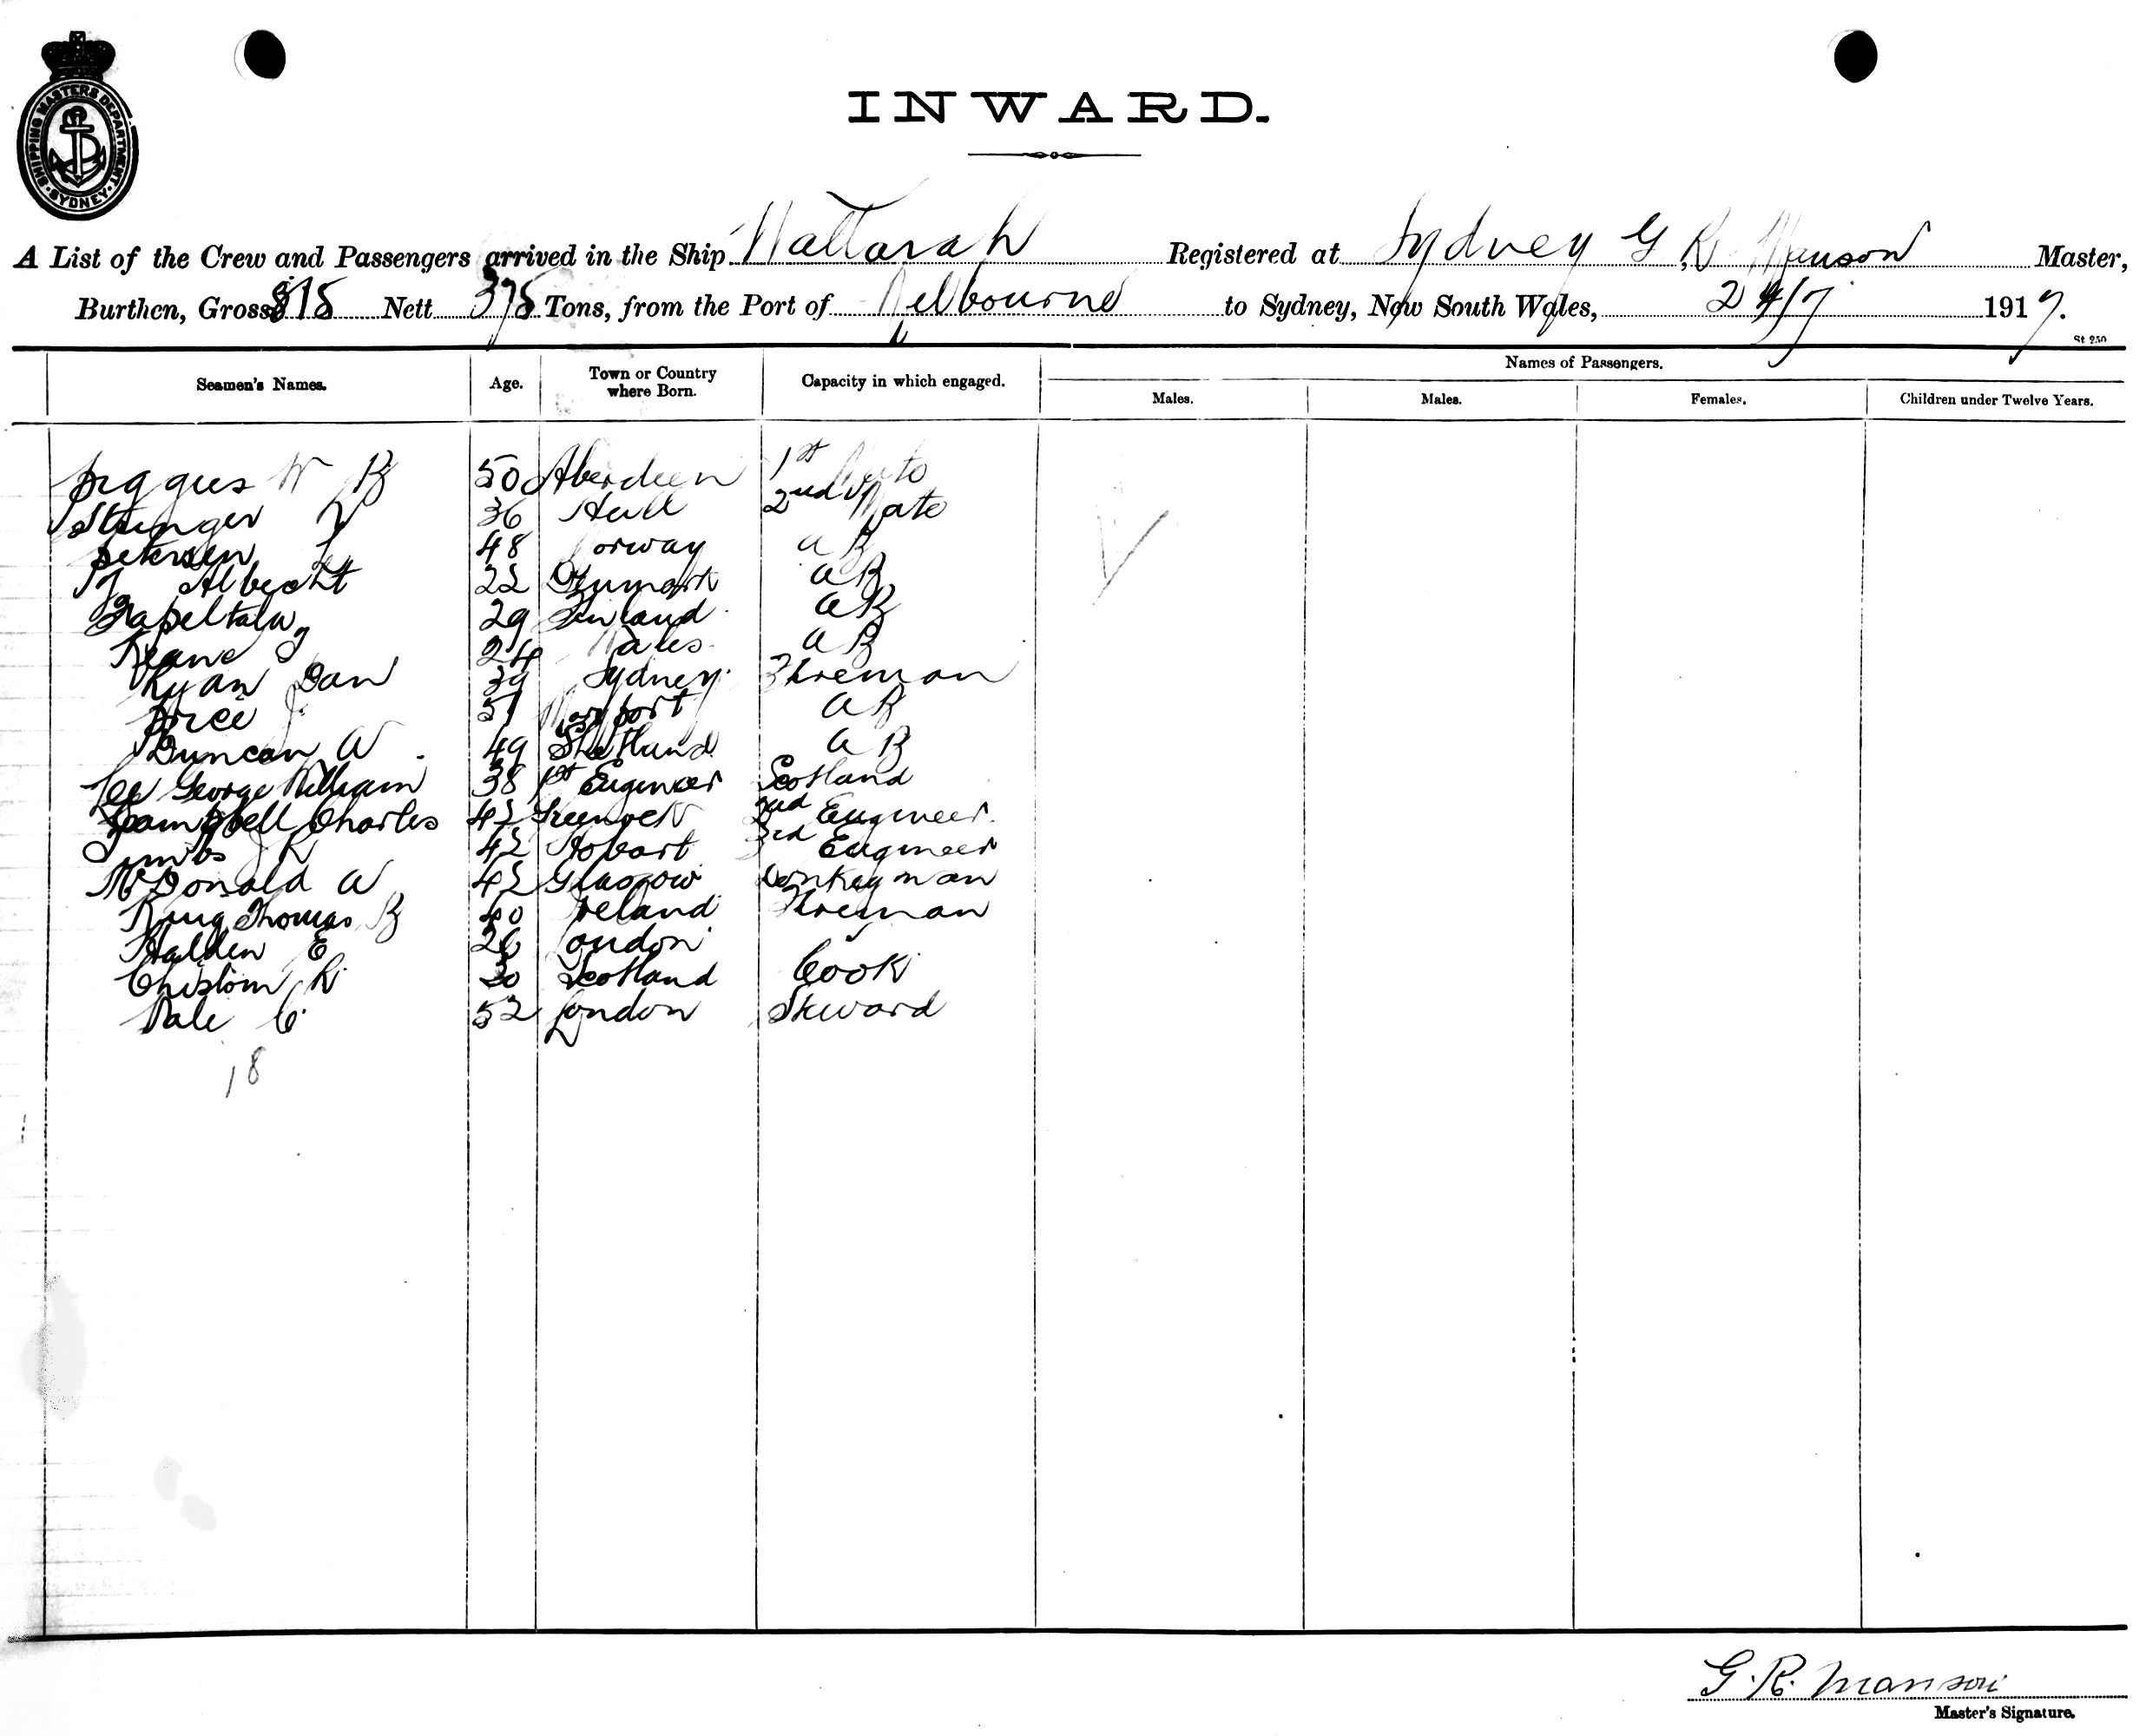 SHIPPING MASTERS DEPARTMENT. SYDNEY
INWARD.
A List of the Crew and Passengers arrived in the Ship Wattarah Registered at Sydney G R Manson Master,
Burthen, Gross 818 Nett 375 Tons, from the Port of Melbourne to Sydney, New South Wales, 24/7 1917.
St 250
Seamen's Names. Age. Town or Country where Born. Capacity in which engaged. Names of Passengers.
Males. Males. Females. Children under Twelve Years.
W 50 Aberdeen 1st Mate
Stringer 36 Hull 2nd Mate
Petersen 48 Norway A B
Albecht 22 Denmark A B
29 Finland A B
Keane 24 Wales A B
Ryan Dan 39 Sydney Fireman
Price J 51 A B
Duncan A 49 Shetland A B
Lee George William 38 1st Engineer Scotland
Campbell Charles 42 2nd Engineer
42 Hobart 3rd Engineer
McDonald A 42 Glasgow Donkeyman
King Thomas 40 Ireland Fireman
Halden E 26 London
Chislom R 30 Scotland Cook
Dale C 52 London Steward
18
G. R. Manson
Master's Signature.